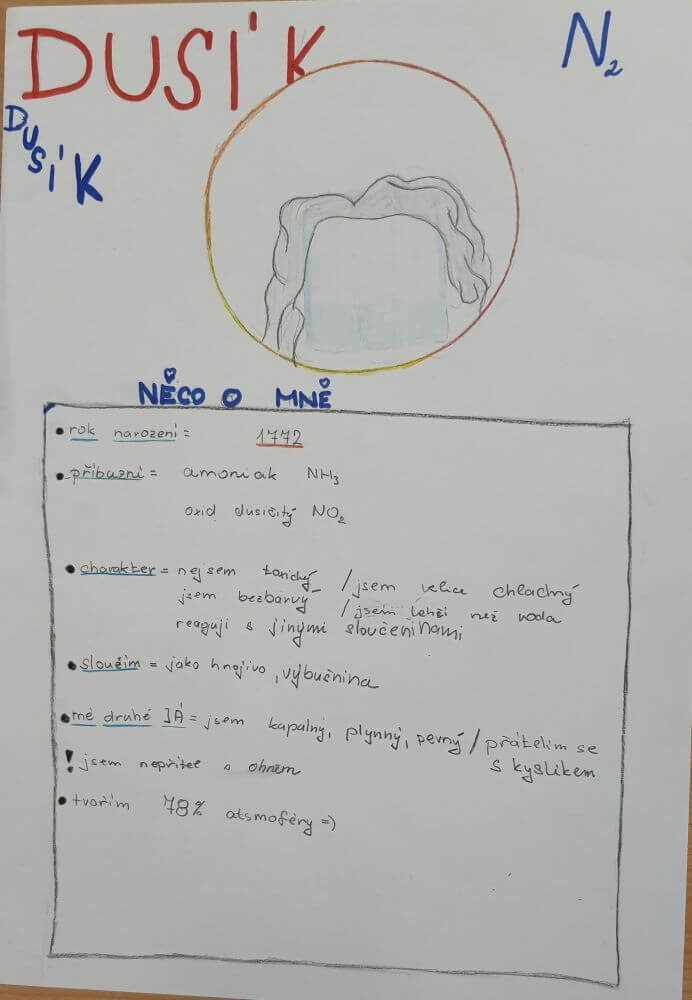 DUSÍK
N2
DUSÍK
NĚCO O MNĚ
• rok narození = 1772
• příbuzní = amoniak NH3
oxid dusičitý NO2
• charakter = nejsem toxický / jsem velice chladný
jsem bezbarvý / jsem lehží než voda
reaguji s jinými sloučeninami
• sloužím = jako hnojivo, výbušnina
• mé druhé JÁ = jsem kapalný, plynný, pevný / přátelím se
s kyslíkem
! jsem nepřítel s ohněm
• tvořím 78% atsmoféry =)